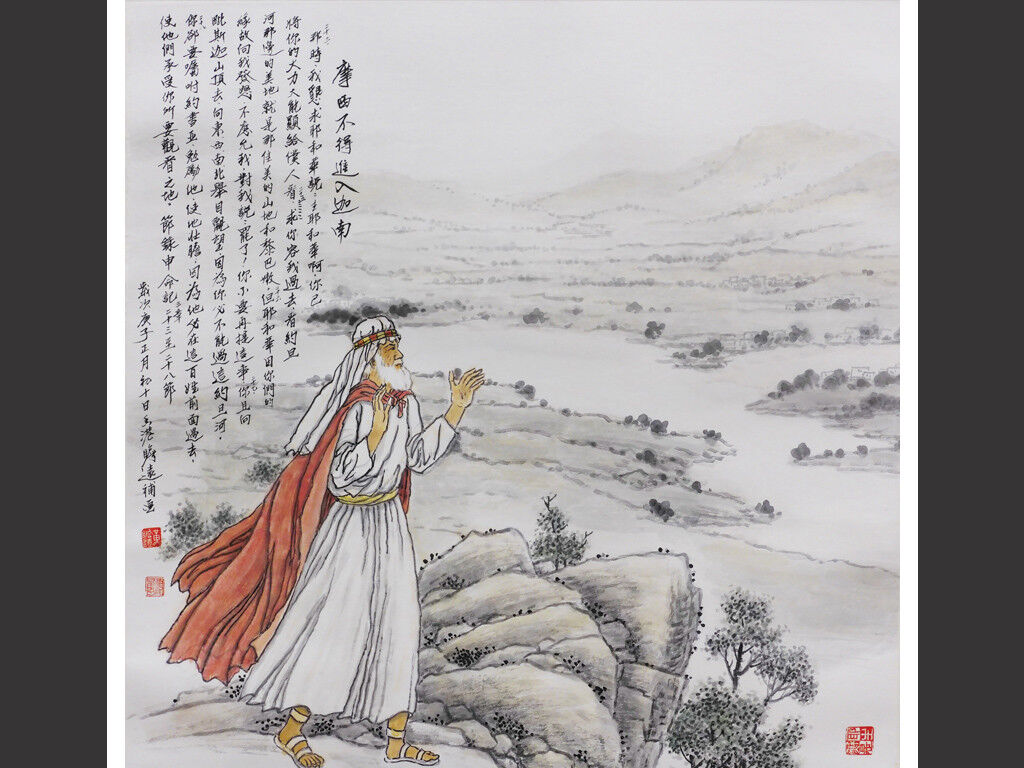 摩西不得進入迦南
二十三 那時，我懇求耶和華說：主耶和華啊，你已
將你的大力大能顯給僕人看。……求你容我過去看約旦
河那邊的美地，就是那佳美的山地和黎巴嫩。但耶和華因你們的
緣故向我發怒，不應允我，對我說：罷了！你不要再提這事。你且向
毗斯迦山頂去，向東西南北舉目觀望，因為你必不能過這約旦河。
你卻要囑咐約書亞，勉勵他，使他壯膽，因為他必在這百姓前面過去，
使他們承受你所要觀看之地。節錄申命記三章二十三至二十八節
歲次庚子正月初十日香港